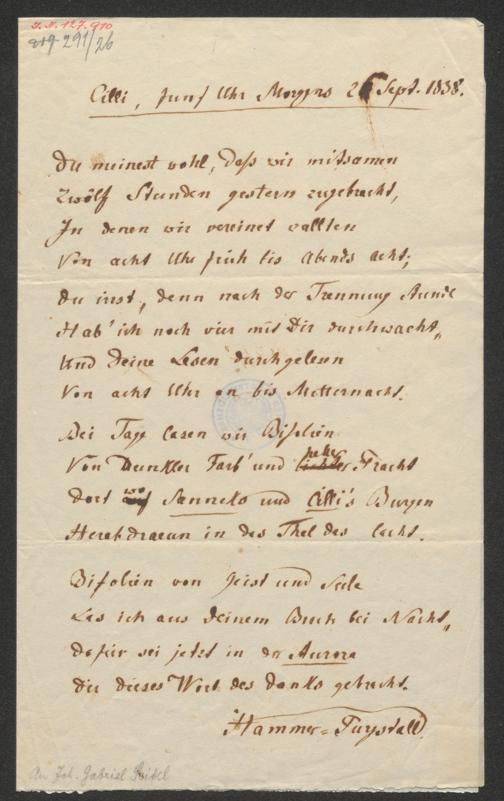 I. N. 127.910
291/26
Cilli, fünf Uhr Morgens 26 Sept. 1838.
Du meinest wohl, daß wir mitsamen
Zwölf Stunden gestern zugebracht,
In denen wir vereinet wallten
Von acht Uhr früh bis Abends acht;
Du irrst, denn nach der Trennung Stunde
Hab' ich noch vier mit Dir durchwacht,
Und Deine durchgelesen
Von acht Uhr an bis Mitternacht.
Bei Tage lasen wir Bifolien
Von Dunkler Farb' und Pracht
Dort wo Sanneks und Cilli's Burgen
Herabdraeun in das Thal das lacht.
Bifolien von Geist und Seele
Las ich aus Deinem Buch bei Nacht,
Dafür sei jetzt in der Aurora
Dir dieses Wort des Danks gebracht.
Hammer-Purgstall
An Joh. Gabriel Seidl